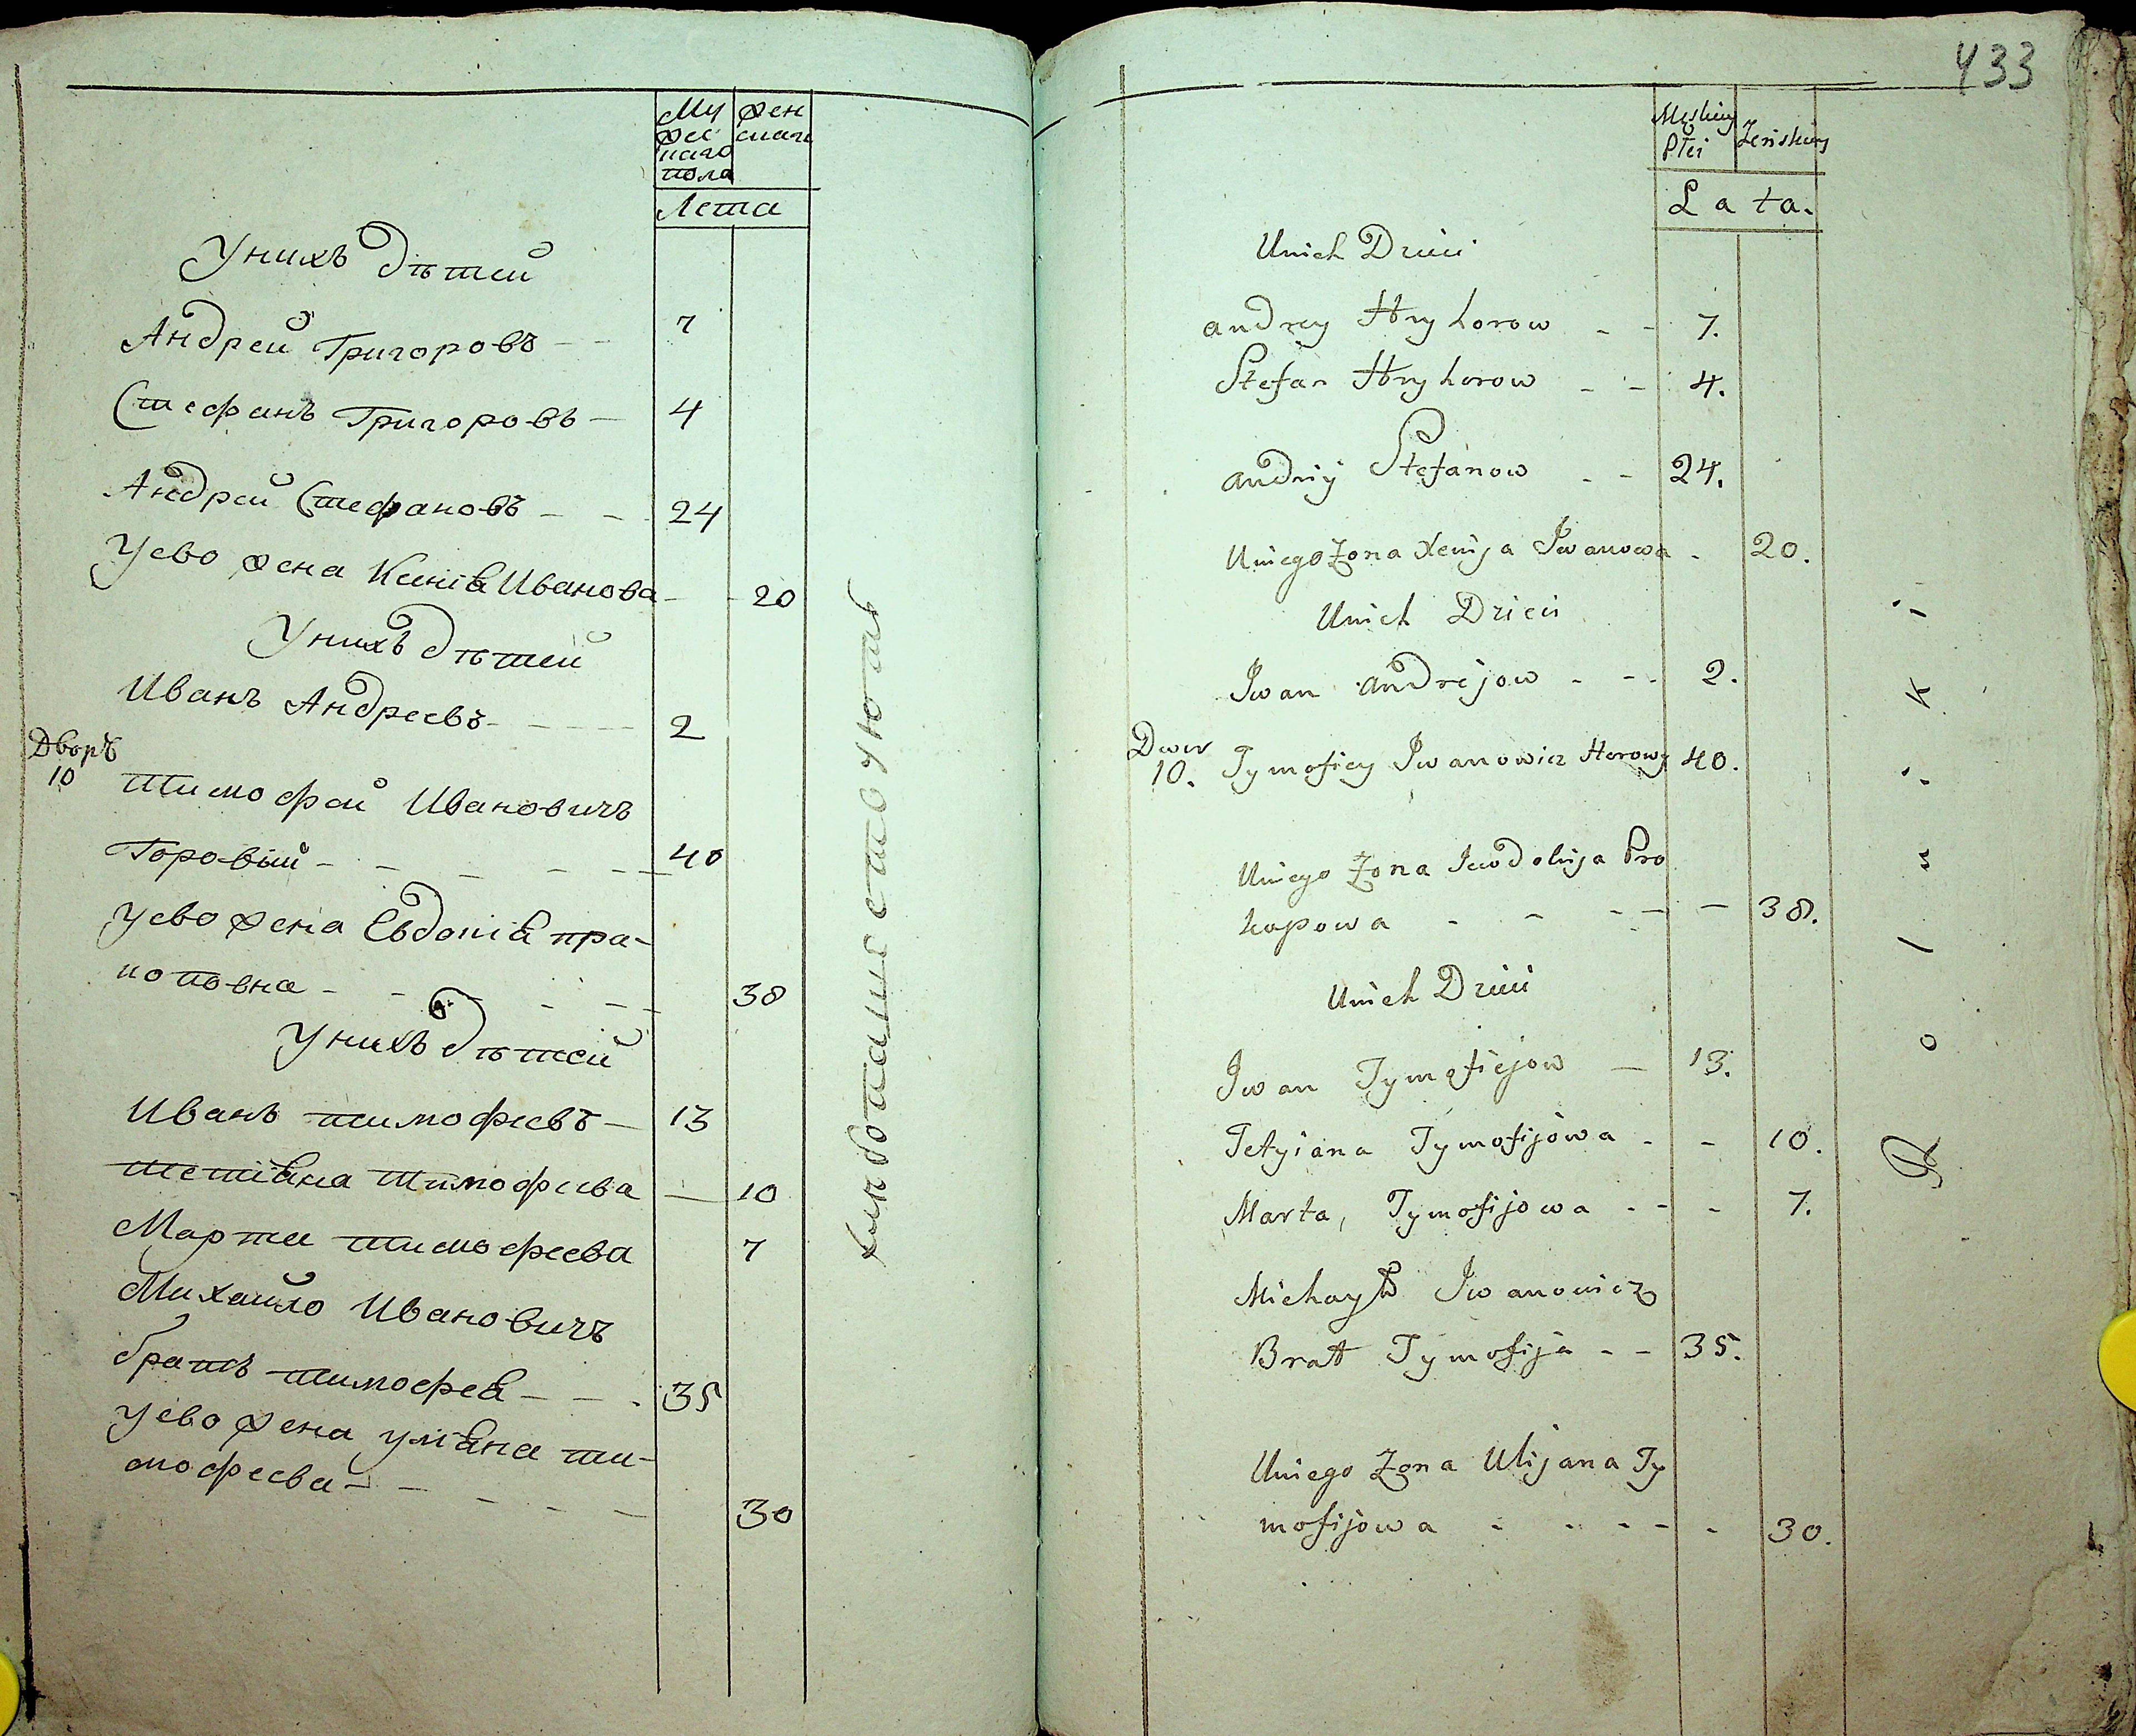 Му
жес
каго
пола
жен
скаго
Лета
Унихъ Дѣтей
Андрей Григоровъ - - 7
Стефанъ Григоровъ - 4
Андрей Стефановъ - - 24
Уево жена Ксенія Иванова - - 20
Унихъ Дѣтей
Иванъ Андреевъ - - - 2
Дворъ
10
Тимофей Ивановичъ
Горовый - - - - - 40
Уево жена Евдокія про-
коповна - - - - - 38
Унихъ Дѣтей
Иванъ Тимофеевъ - 13
Тетіана Тимофеева - 10
Марта Тимофеева 7
Михайло Ивановичъ
братъ Тимофея - - - 35
Уево жена Уліяна Ти-
мофеева - - - - - 30
хлѣбопашествуютъ
433
Męskiey
Płci
Żeńskiey
Lata.
Unich Dzieci
Andrey Hryhorow - - 7.
Stefan Hryhorow - - 4.
Andrij Stefanow - - 24.
Uniego Żona Xenija Iwanowa - 20.
Unich Dzieci
Iwan Andrejow - - - 2.
Dwor
10. Tymofiey Iwanowicz Horowy 40.
Uniego Żona Iewdokija Pro
kopowa - - - - - 38.
Unich Dzieci
Iwan Tymofiejow - 13.
Tetyiana Tymofijowa - - 10.
Marta, Tymofijowa - - - 7.
Michayło Iwanowicz
Brat Tymofija - - 35.
Uniego Żona Ulijana Ty
mofijowa - - - - - 30.
Rolniki